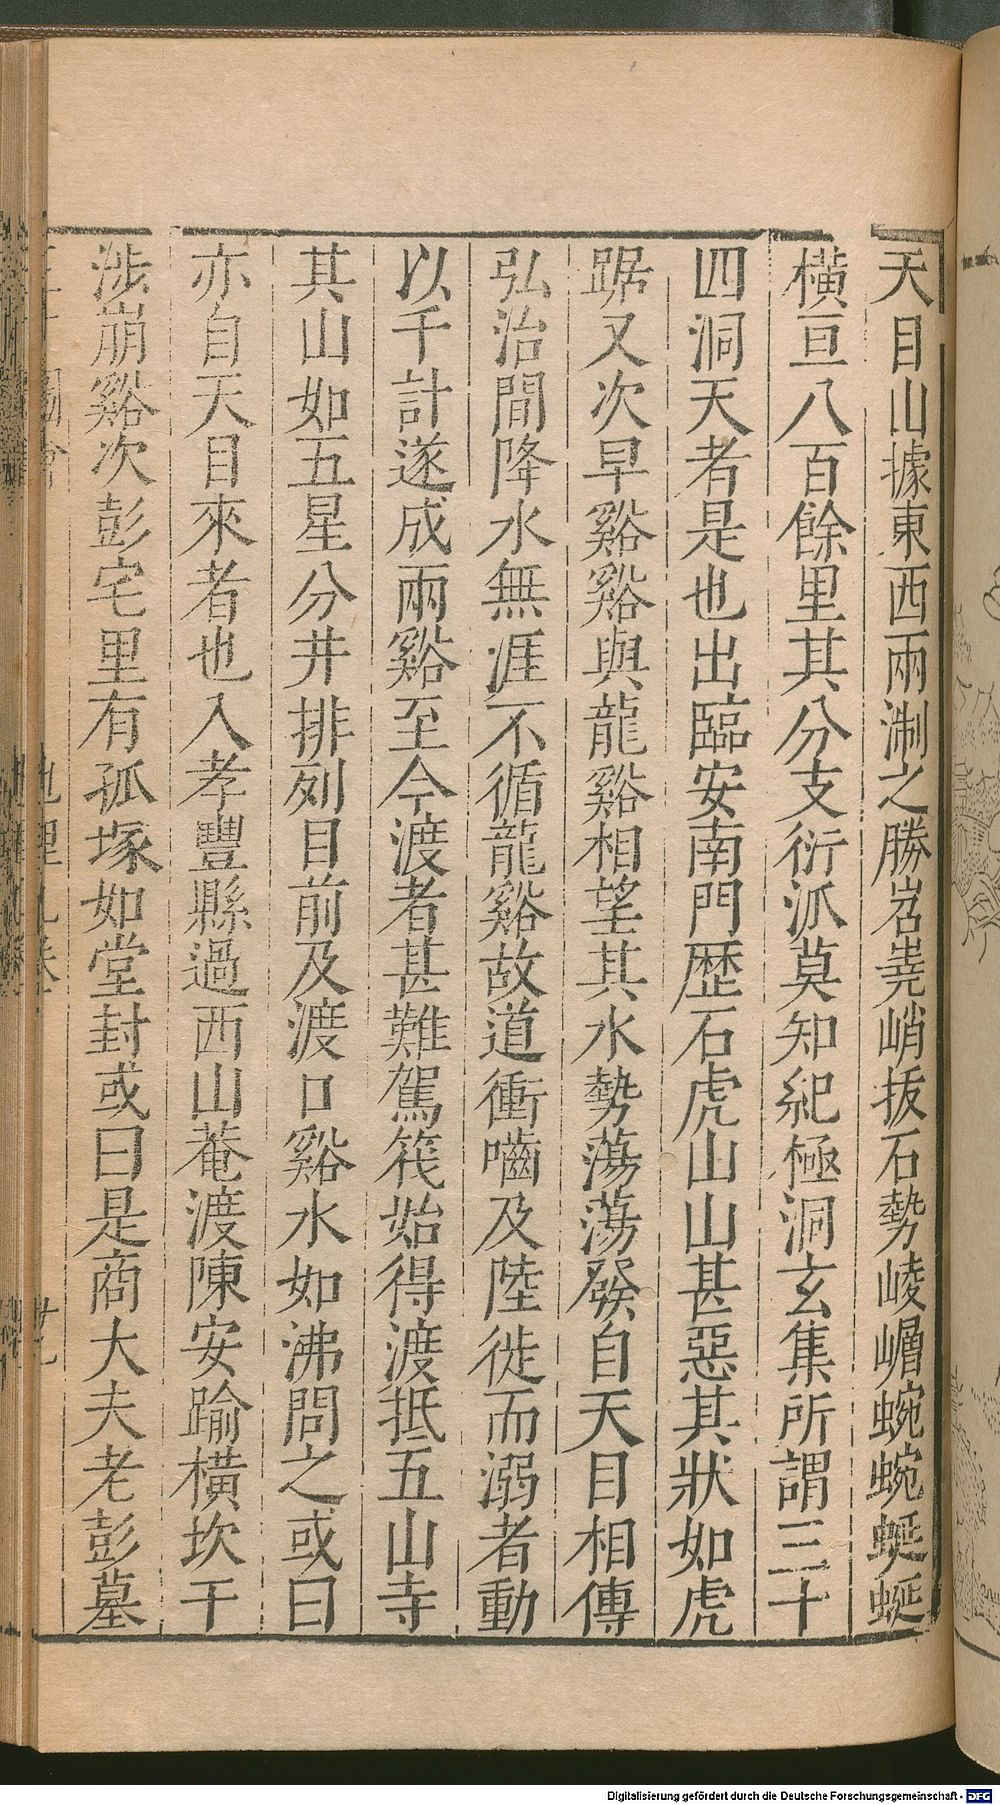 天目山據東西兩淛之勝岧嶤峭拔石勢崚嶒蜿蜿蜒蜒
橫亘八百餘里其分支衍派莫知紀極洞玄集所謂三十
四洞天者是也出臨安南門歷石虎山山甚惡其狀如虎
踞又次早谿谿與龍谿相望其水勢蕩蕩發自天目相傳
弘治間降水無涯不循龍谿故道衝嚙及陸徙而溺者動
以千計遂成兩谿至今渡者甚難駕筏始得渡抵五山寺
其山如五星分井排列目前及渡口谿水如沸問之或曰
亦自天目來者也入孝豐縣過西山菴渡陳安踰橫坎干
涉崩谿次彭宅里有孤塚如堂封或曰是商大夫老彭墓
地理九卷
廿九
Digitalisierung gefördert durch die Deutsche Forschungsgemeinschaft - DFG